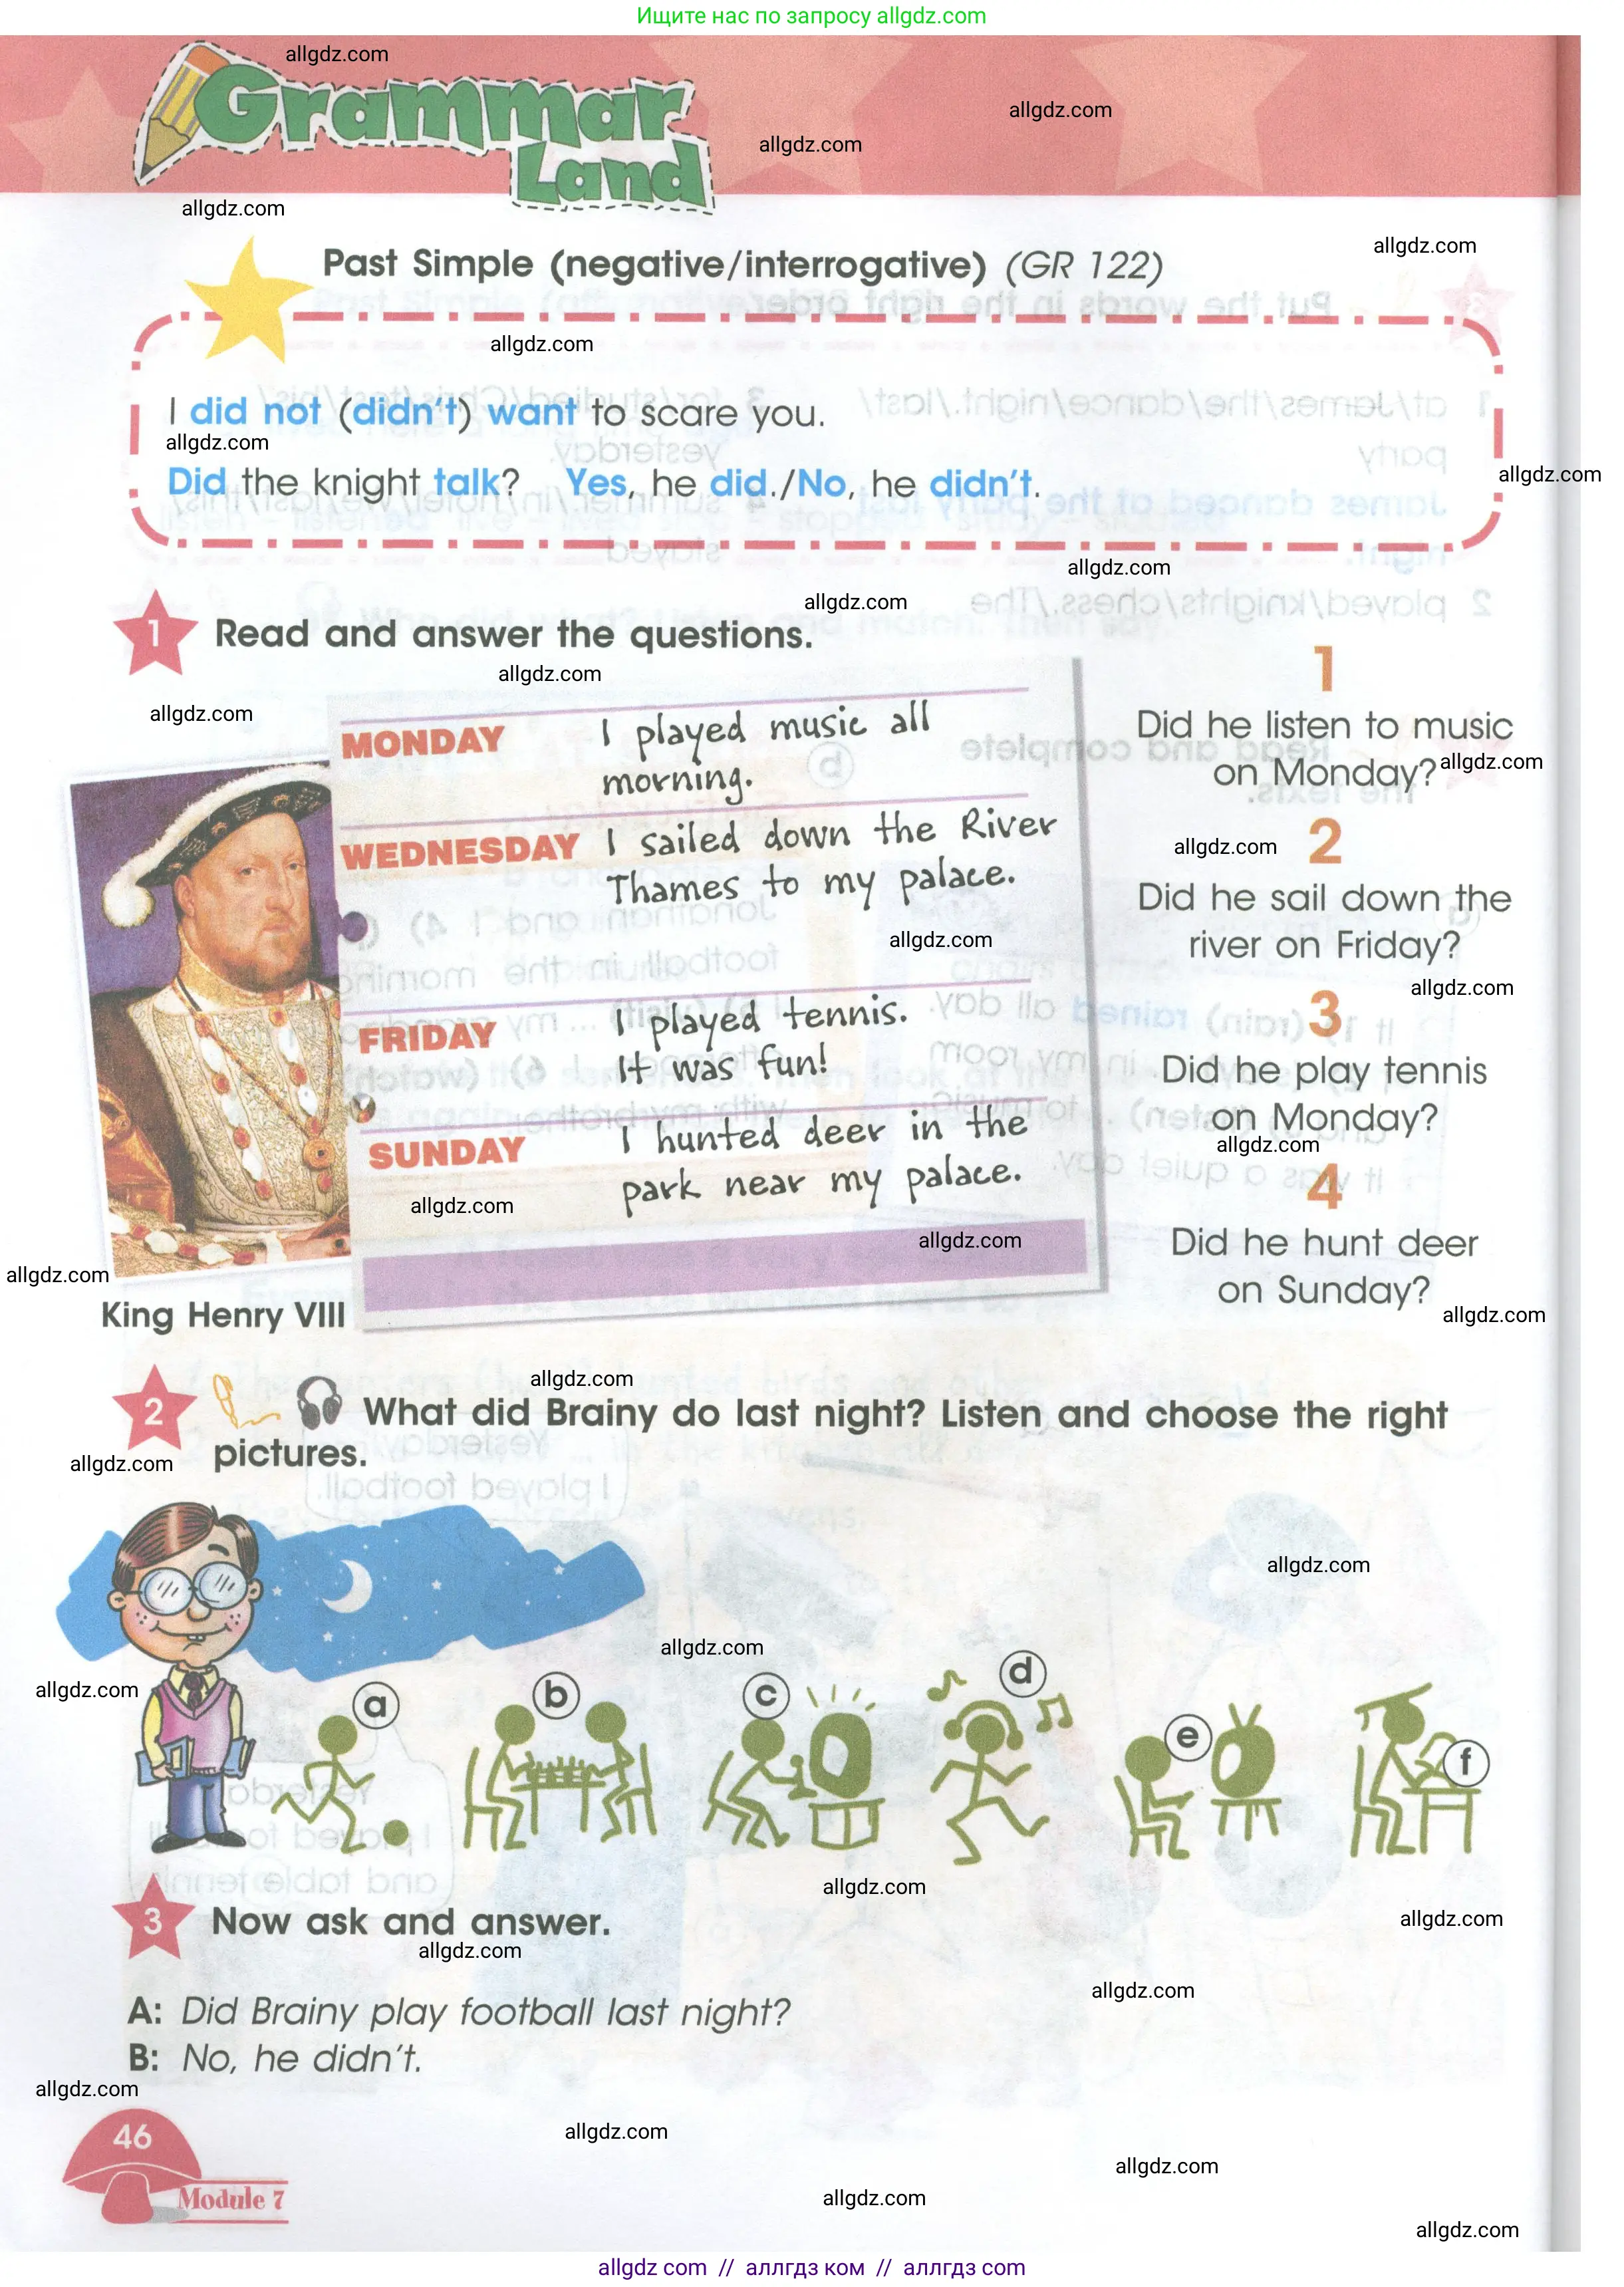 Ищите нас по запросу allgdz.com
allgdz.com
Grammar
allgdz.com
allgdz.com
Land
allgdz.com
allgdz.com
Past Simple (negative/interrogative) (GR 122)
allgdz.com
I did not (didn't) want to scare you.
allgdz.com
allgdz.com
Did the knight talk? Yes, he did./No, he didn't.
allgdz.com
allgdz.com
1 Read and answer the questions.
allgdz.com
allgdz.com
MONDAY I played music all
morning.
WEDNESDAY I sailed down the River
Thames to my palace.
allgdz.com
FRIDAY I played tennis.
It was fun!
SUNDAY I hunted deer in the
park near my palace.
allgdz.com
allgdz.com
allgdz.com
King Henry VIII
1
Did he listen to music
on Monday?
allgdz.com
allgdz.com
2
Did he sail down the
river on Friday?
allgdz.com
3
Did he play tennis
on Monday?
allgdz.com
4
Did he hunt deer
on Sunday?
allgdz.com
allgdz.com
2 What did Brainy do last night? Listen and choose the right
pictures.
allgdz.com
allgdz.com
allgdz.com
allgdz.com
a
b
c
d
e
f
allgdz.com
allgdz.com
3 Now ask and answer.
allgdz.com
allgdz.com
A: Did Brainy play football last night?
B: No, he didn't.
allgdz.com
46
allgdz.com
allgdz.com
Module 7
allgdz.com
allgdz.com
allgdz com // аллгдз ком // аллгдз com